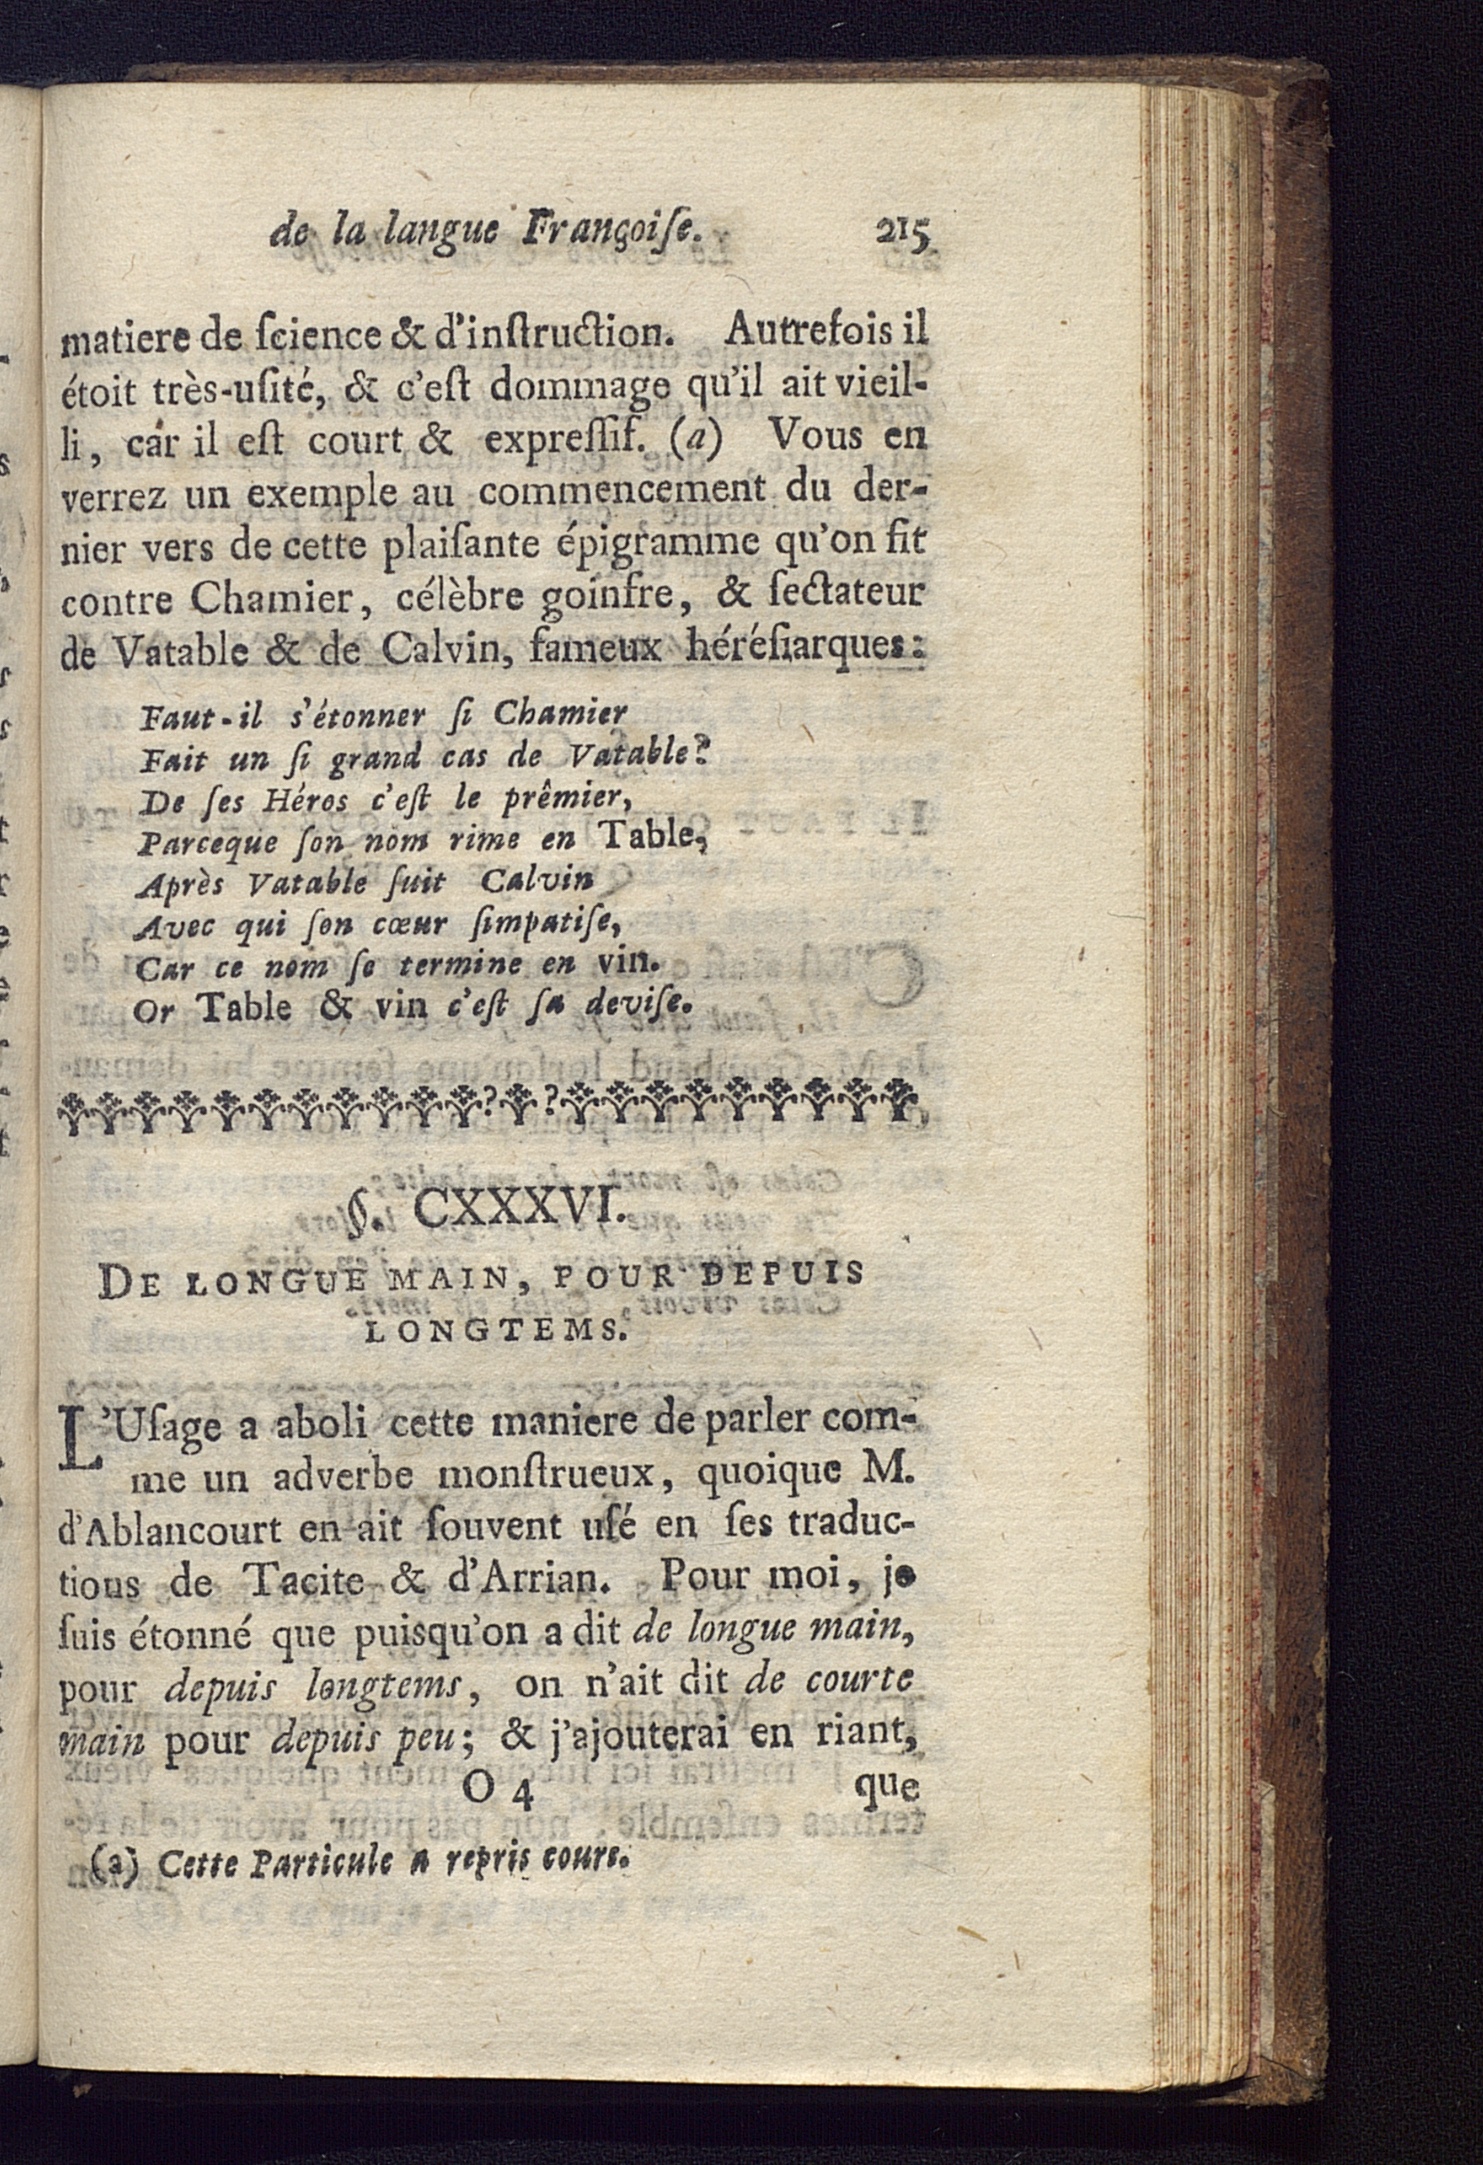 de la langue Françoiſe. 215
matiere de ſcience & d'inſtruction. Autrefois il
étoit très-uſité, & c'eſt dommage qu'il ait vieil-
li, car il eſt court & expreſſif. (a) Vous en
verrez un exemple au commencement du der-
nier vers de cette plaiſante épigramme qu'on fit
contre Chamier, célèbre goinfre, & ſectateur
de Vatable & de Calvin, fameux héréſiarques:
Faut-il s'étonner ſi Chamier
Fait un ſi grand cas de Vatable?
De ſes Héros c'eſt le prêmier,
Parceque ſon nom rime en Table,
Après Vatable ſuit Calvin
Avec qui ſon cœur ſimpatiſe,
Car ce nom ſe termine en vin.
Or Table & vin c'eſt ſa deviſe.
§. CXXXVI.
DE LONGUE MAIN, POUR DEPUIS
LONGTEMS.
L'Uſage a aboli cette maniere de parler com-
me un adverbe monſtrueux, quoique M.
d'Ablancourt en ait ſouvent uſé en ſes traduc-
tions de Tacite & d'Arrian. Pour moi, je
ſuis étonné que puisqu'on a dit de longue main,
pour depuis longtems, on n'ait dit de courte
main pour depuis peu; & j'ajouterai en riant,
O 4 que
(a) Cette Particule a repris cours.